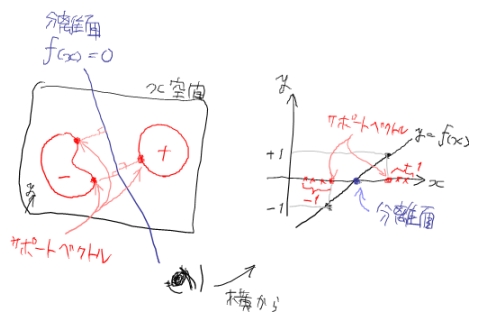 分離面
f(x)=0
x空間
-
+
y
サポートベクトル
横から
y
サポートベクトル
y=f(x)
+1
+1
x
-1
-1
分離面